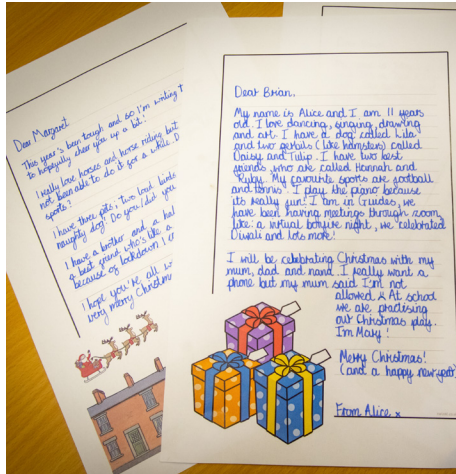 Dear Margaret
This year's been tough and so I'm writing t
to hopefully cheer you up a bit!
I really love horses and horse riding but
not been able to do it for a while. D
sports?
I have three pets: two loud birds
naughty dog! Do you/did you
I have a brother and a hal
& best friend who's like a
because of lockdown I c
I hope you're all w
very merry Christm
Dear Brian,
My name is Alice and I am 11 years
old. I love dancing, singing, drawing
and art. I have a dog called Lila
and two gerbils (like hamsters) called
Daisy and Tulip. I have two best
friends who are called Hannah and
Ruby. My favourite sports are football
and tennis. I play the piano because
its really fun! I am in Guides, we
have been having meetings through zoom,
like: a virtual bonfire night, we celebrated
Diwali and lots more!
I will be celebrating Christmas with my
mum, dad and nana. I really want a
phone but my mum said I'm not
allowed. At school
we are practising
our Christmas play.
I'm Mary!
Merry Christmas!
(and a happy new year)
From Alice x